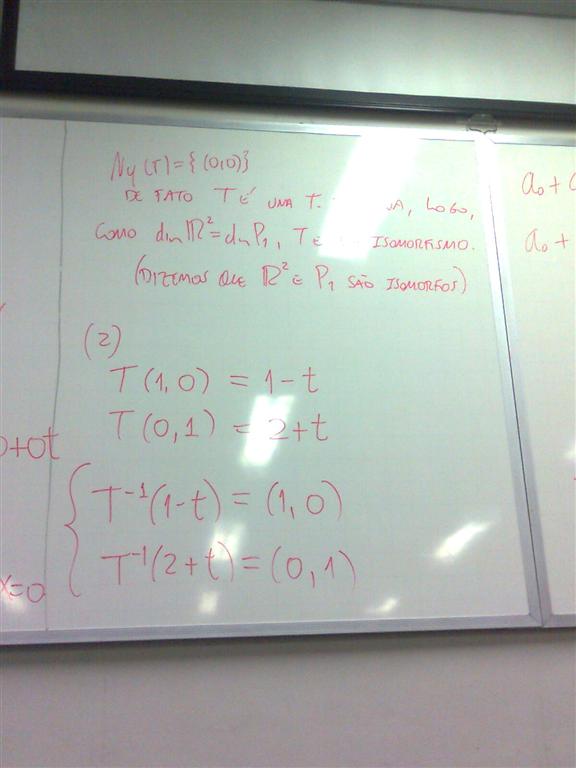 Nu(T)={(0,0)}
DE FATO T É UMA T. , LOGO,
COMO dim ℝ²=dim P₁, T É ISOMORFISMO.
(DIZEMOS QUE ℝ² E P₁ SÃO ISOMORFOS)
(2)
T(1,0) = 1-t
T(0,1) = 2+t
T⁻¹(1-t) = (1,0)
T⁻¹(2+t) = (0,1)
+0t
x=0
a₀ +
a₀ +